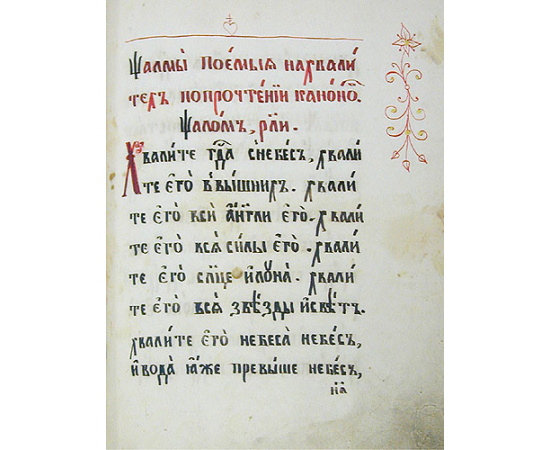 Ѱалмы поемыѧ на хвали
техъ по прочтенїи канонѡ.
Ѱаломъ, рми.
Хвалите гда с нб҃есъ, хвали
те его̀ в вышнихъ. хвали
те его̀ вси а҆́нг҃ли его̀. хвали
те его̀ всѧ̀ силы его̀. хвали
те его̀ сл҃нце и҆ луна̀. хвали
те его̀ всѧ̀ звѣ́зды и҆ свѣтъ.
хвалите его̀ небеса̀ небесъ,
и҆ вода̀ ꙗ҆́же превыше небесъ,
на